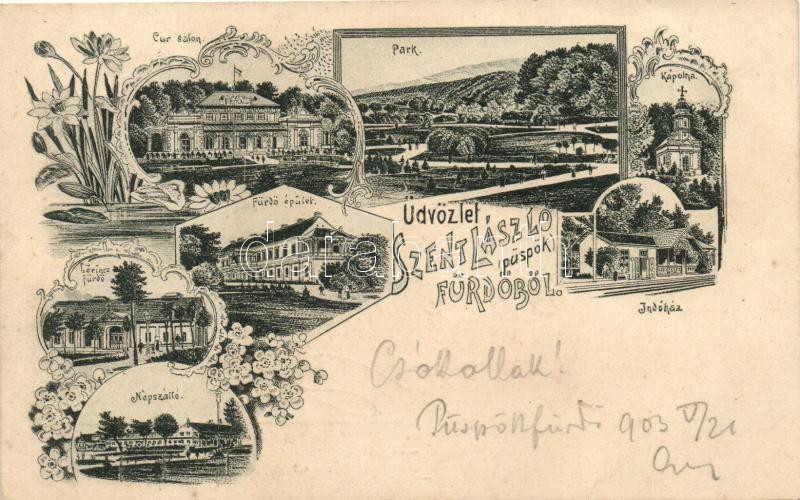 Cur salon.
Park.
Kápolna.
Fürdő épület.
Üdvözlet
SZENT LÁSZLÓ
püspöki
FÜRDŐBŐL.
Lőrincz
fürdő
Indóház
Népszálló.
Csókollak!
Püspökfürdő 903 V/21